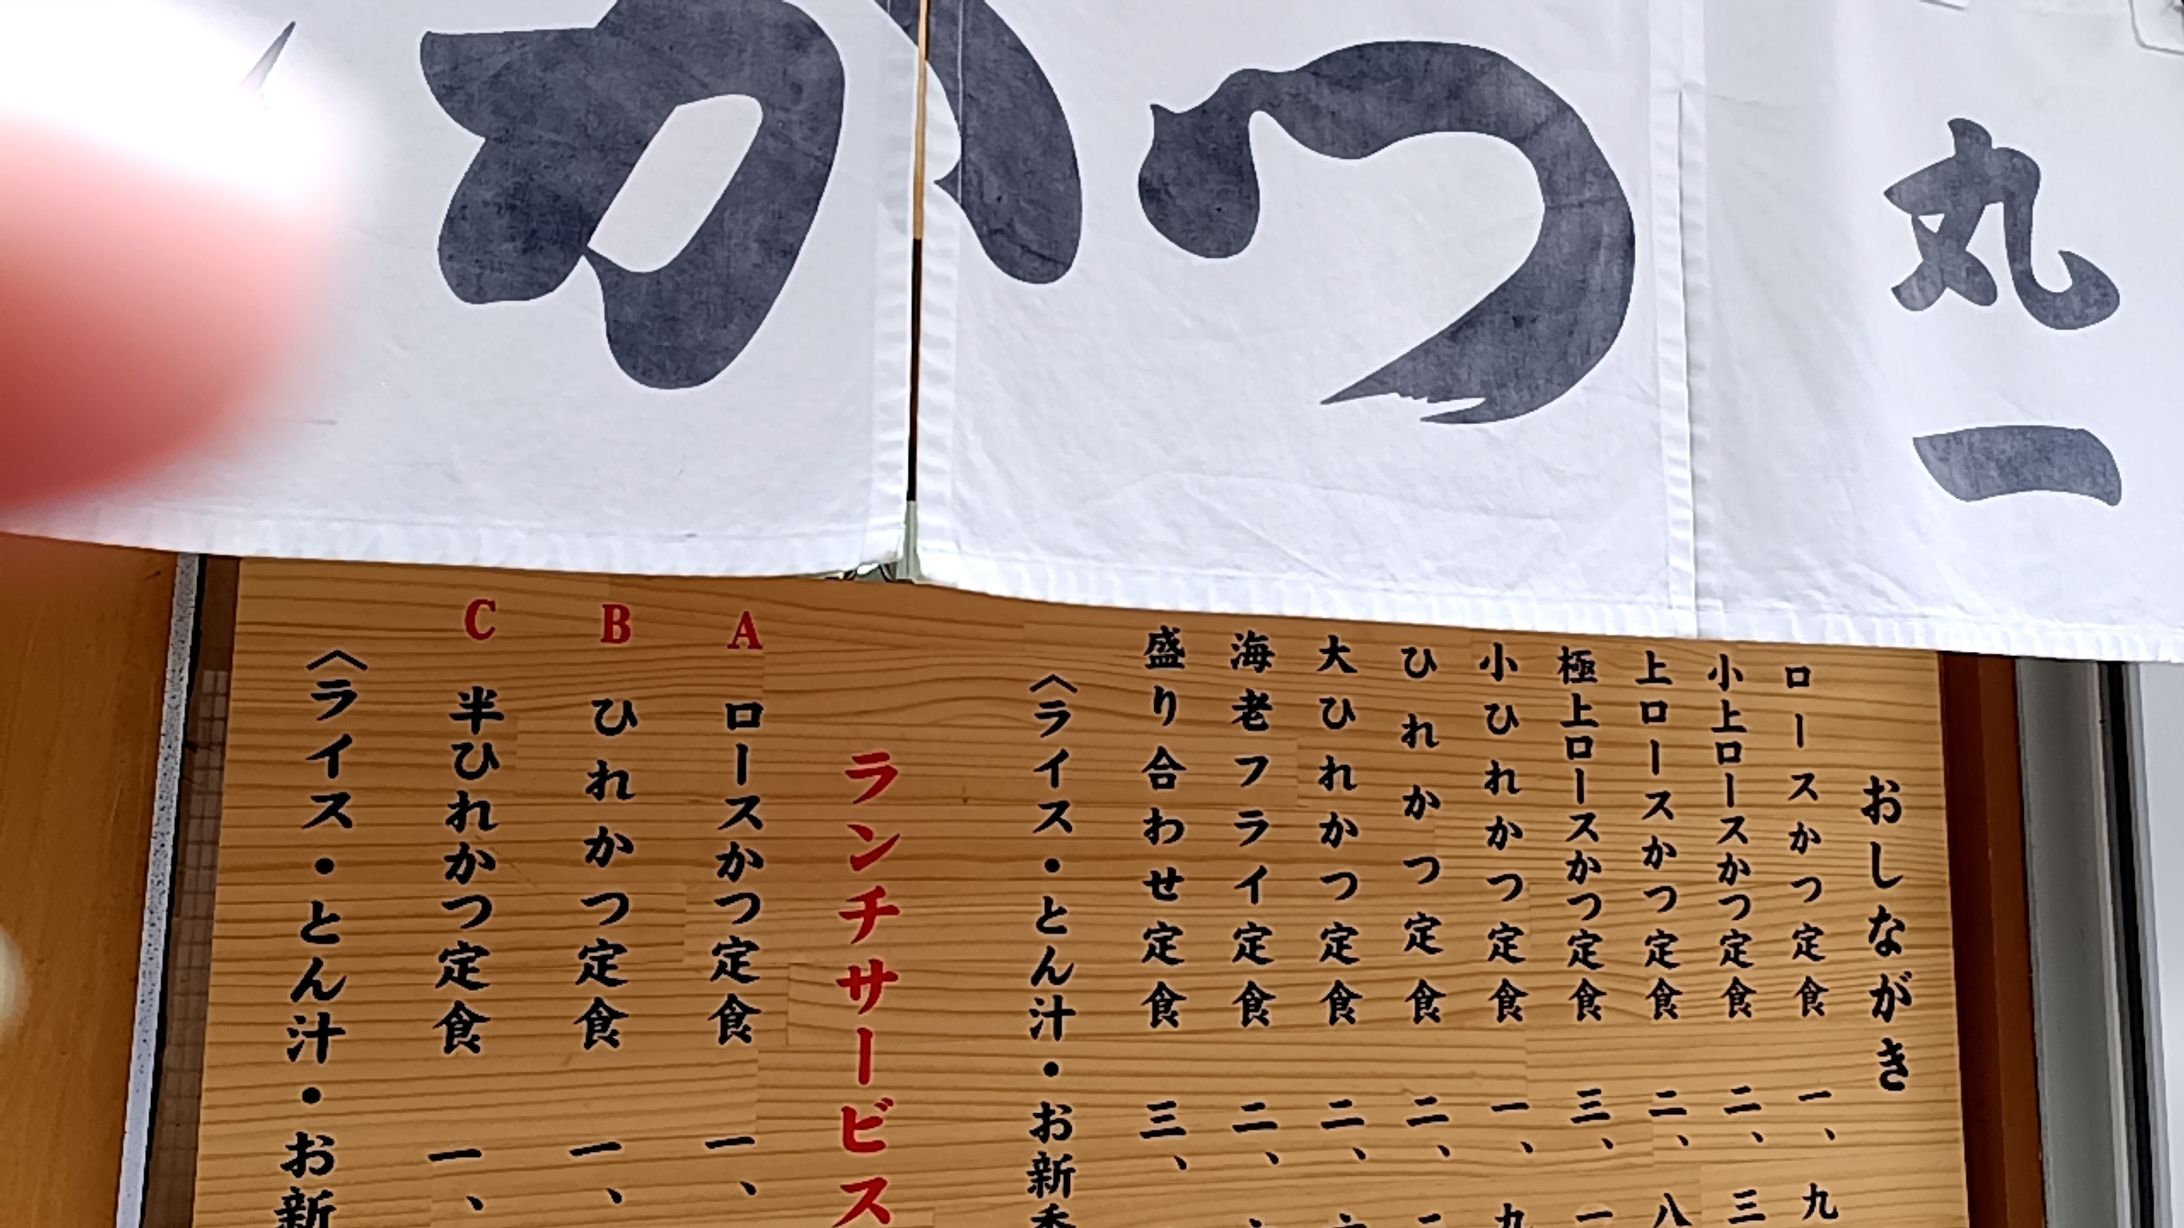 かつ
丸一
おしながき
ロースかつ定食 一、九
小上ロースかつ定食 二、三
上ロースかつ定食 二、八
極上ロースかつ定食 三、一
小ひれかつ定食 一、九
ひれかつ定食 二、
大ひれかつ定食 二、
海老フライ定食 二、
盛り合わせ定食 三、
〈ライス・とん汁・お新香
ランチサービス
A ロースかつ定食 一、
B ひれかつ定食 一、
C 半ひれかつ定食 一、
〈ライス・とん汁・お新